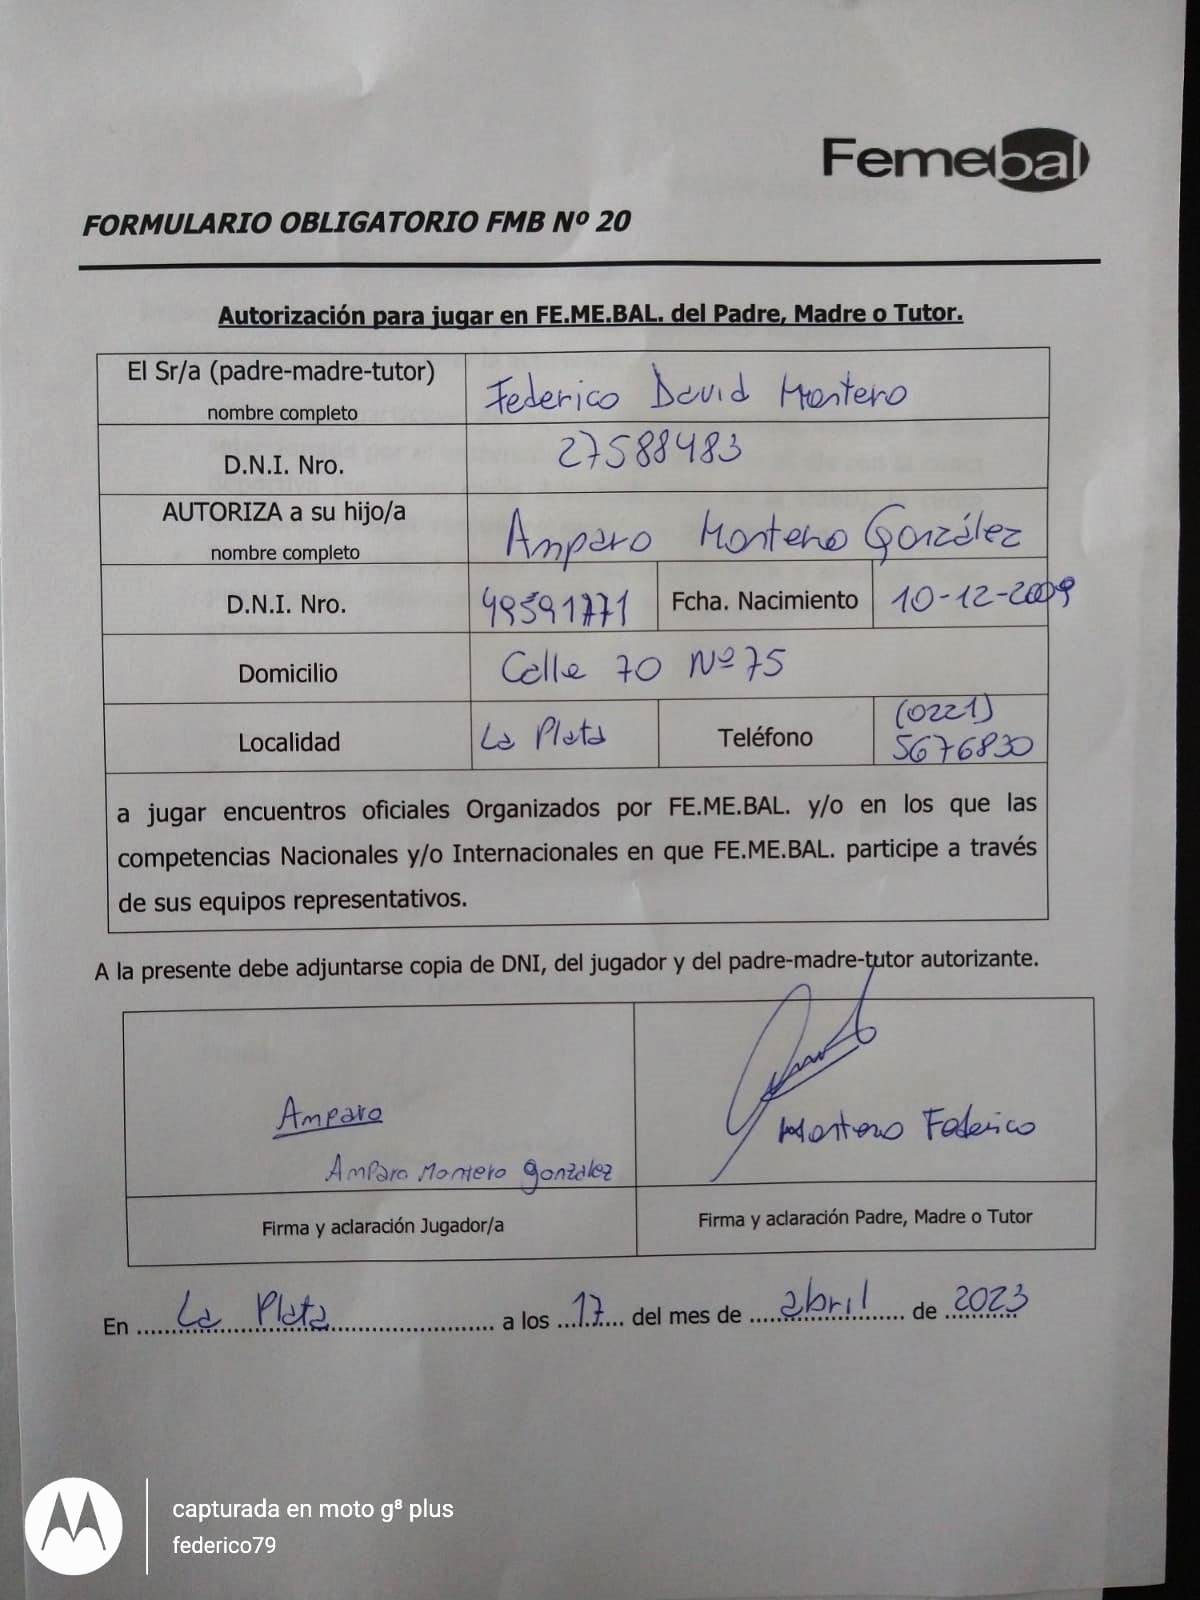 Femebal
FORMULARIO OBLIGATORIO FMB Nº 20
Autorización para jugar en FE.ME.BAL. del Padre, Madre o Tutor.
El Sr/a (padre-madre-tutor)
nombre completo
Federico David Montero
D.N.I. Nro.
27588483
AUTORIZA a su hijo/a
nombre completo
Amparo Montero González
D.N.I. Nro.
49591771
Fcha. Nacimiento
10-12-2009
Domicilio
Calle 70 Nº 75
Localidad
La Plata
Teléfono
(0221)
5676830
a jugar encuentros oficiales Organizados por FE.ME.BAL. y/o en los que las
competencias Nacionales y/o Internacionales en que FE.ME.BAL. participe a través
de sus equipos representativos.
A la presente debe adjuntarse copia de DNI, del jugador y del padre-madre-tutor autorizante.
Amparo
Amparo Montero González
Montero Federico
Firma y aclaración Jugador/a
Firma y aclaración Padre, Madre o Tutor
En La Plata a los 17 del mes de abril de 2023
capturada en moto g⁸ plus
federico79